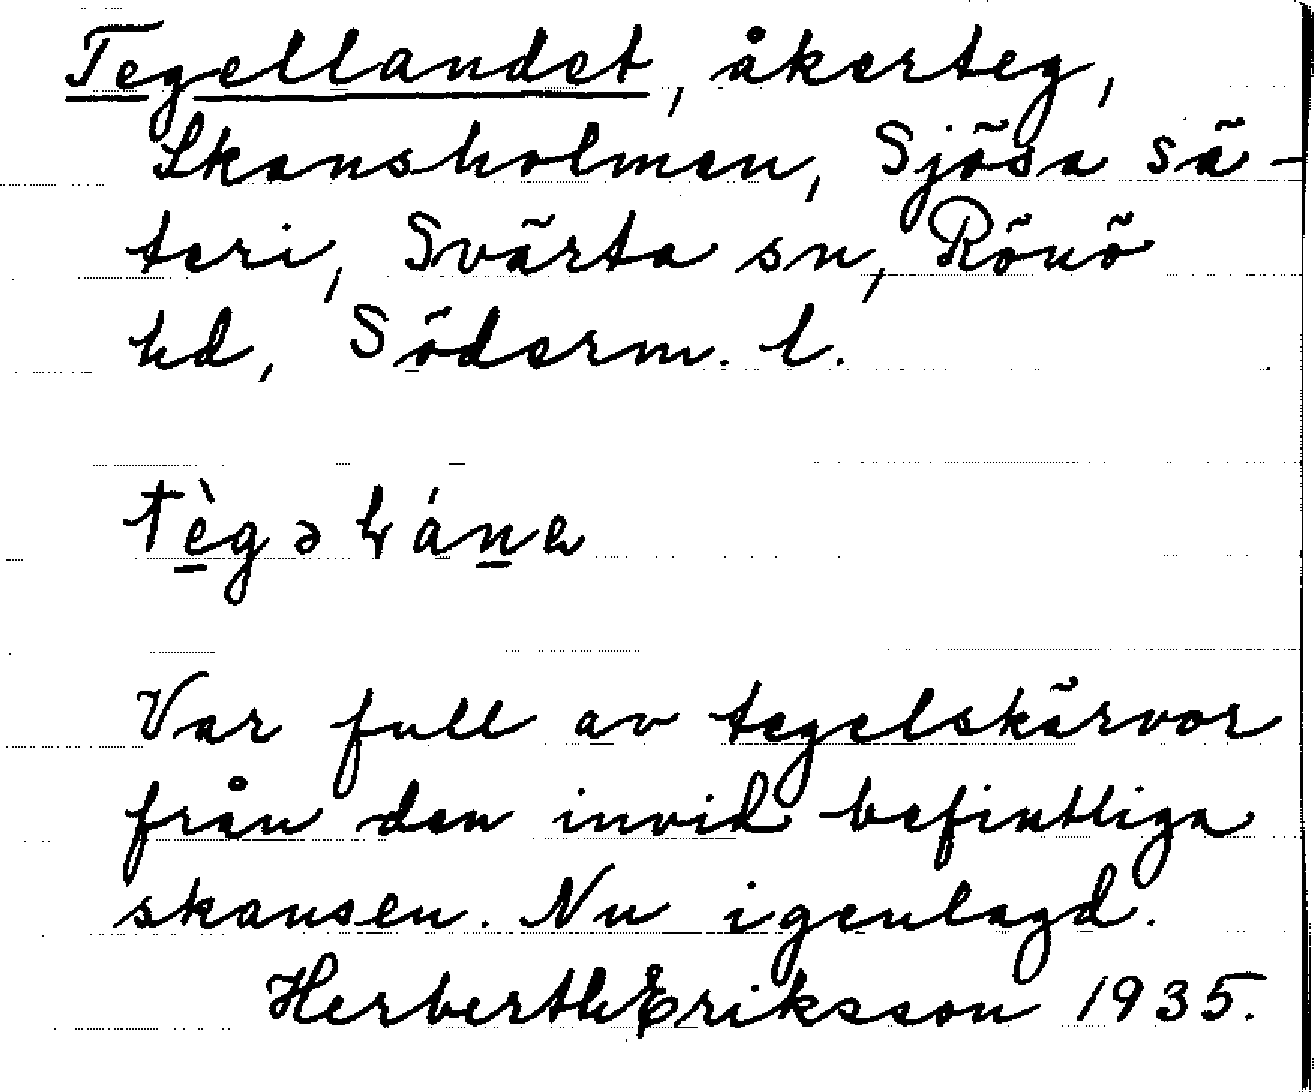 Tegellandet, åkerteg,
Skansholmen, Sjösa sä-
teri, Svärta sn, Rönö
hd, Söderm. l.
Var full av tegelskärvor
från den invid befintliga
skansen. Nu igenlagd.
Herberth Eriksson 1935.